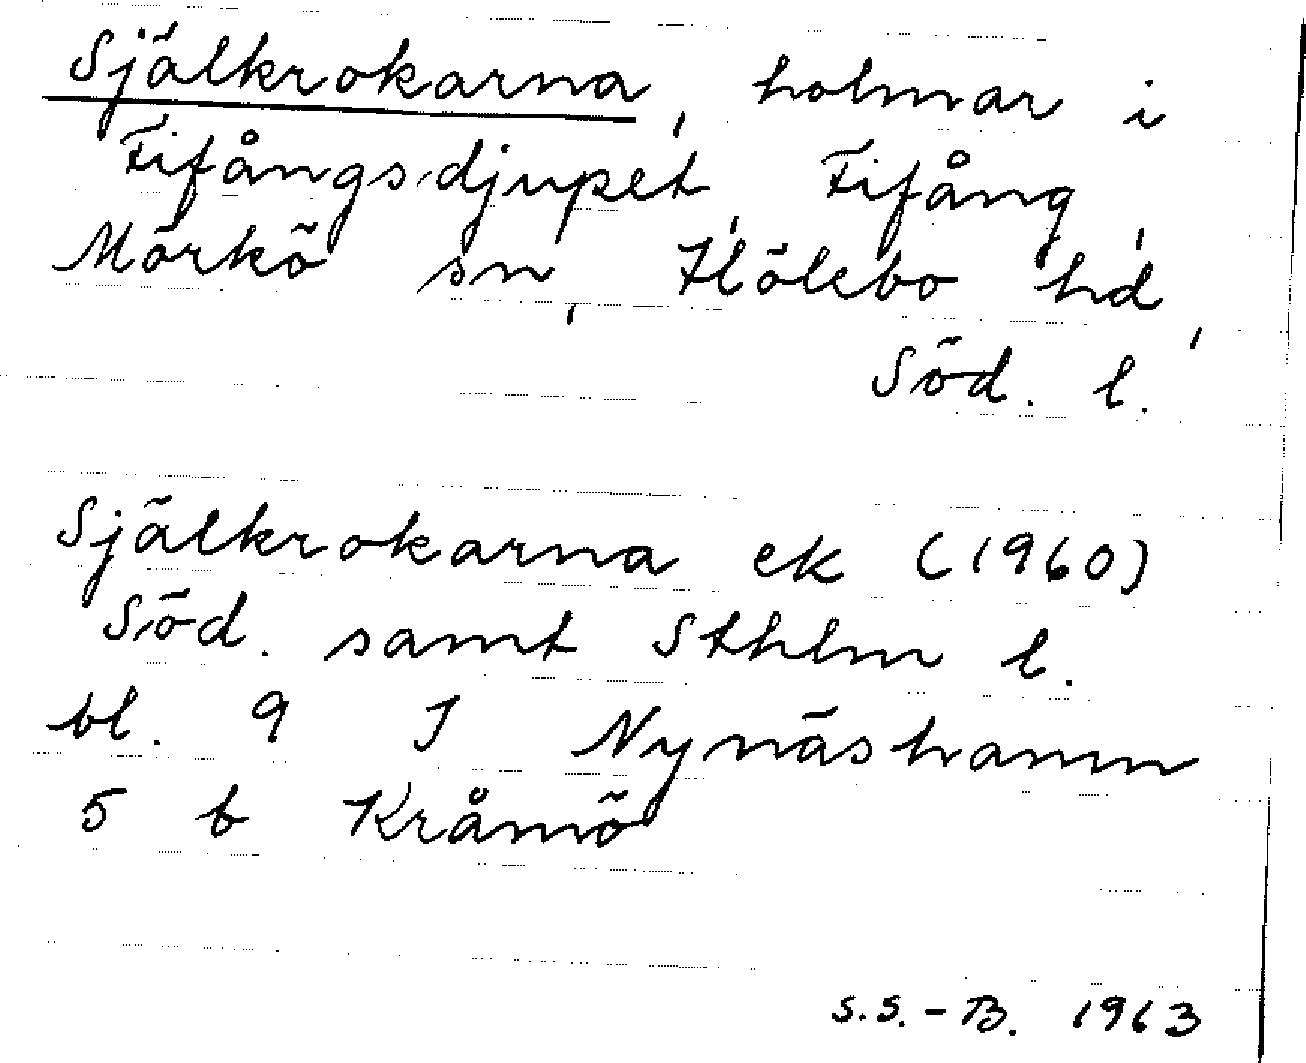 Själkrokarna, holmar i
Fifångsdjupet, Fifång,
Mörkö sn, Hölebo hd,
Söd. l.
Själkrokarna ek (1960)
Söd. samt Sthlm l.
bl. 9 I Nynäshamn
5 b Kråmö
S.S.-B. 1963